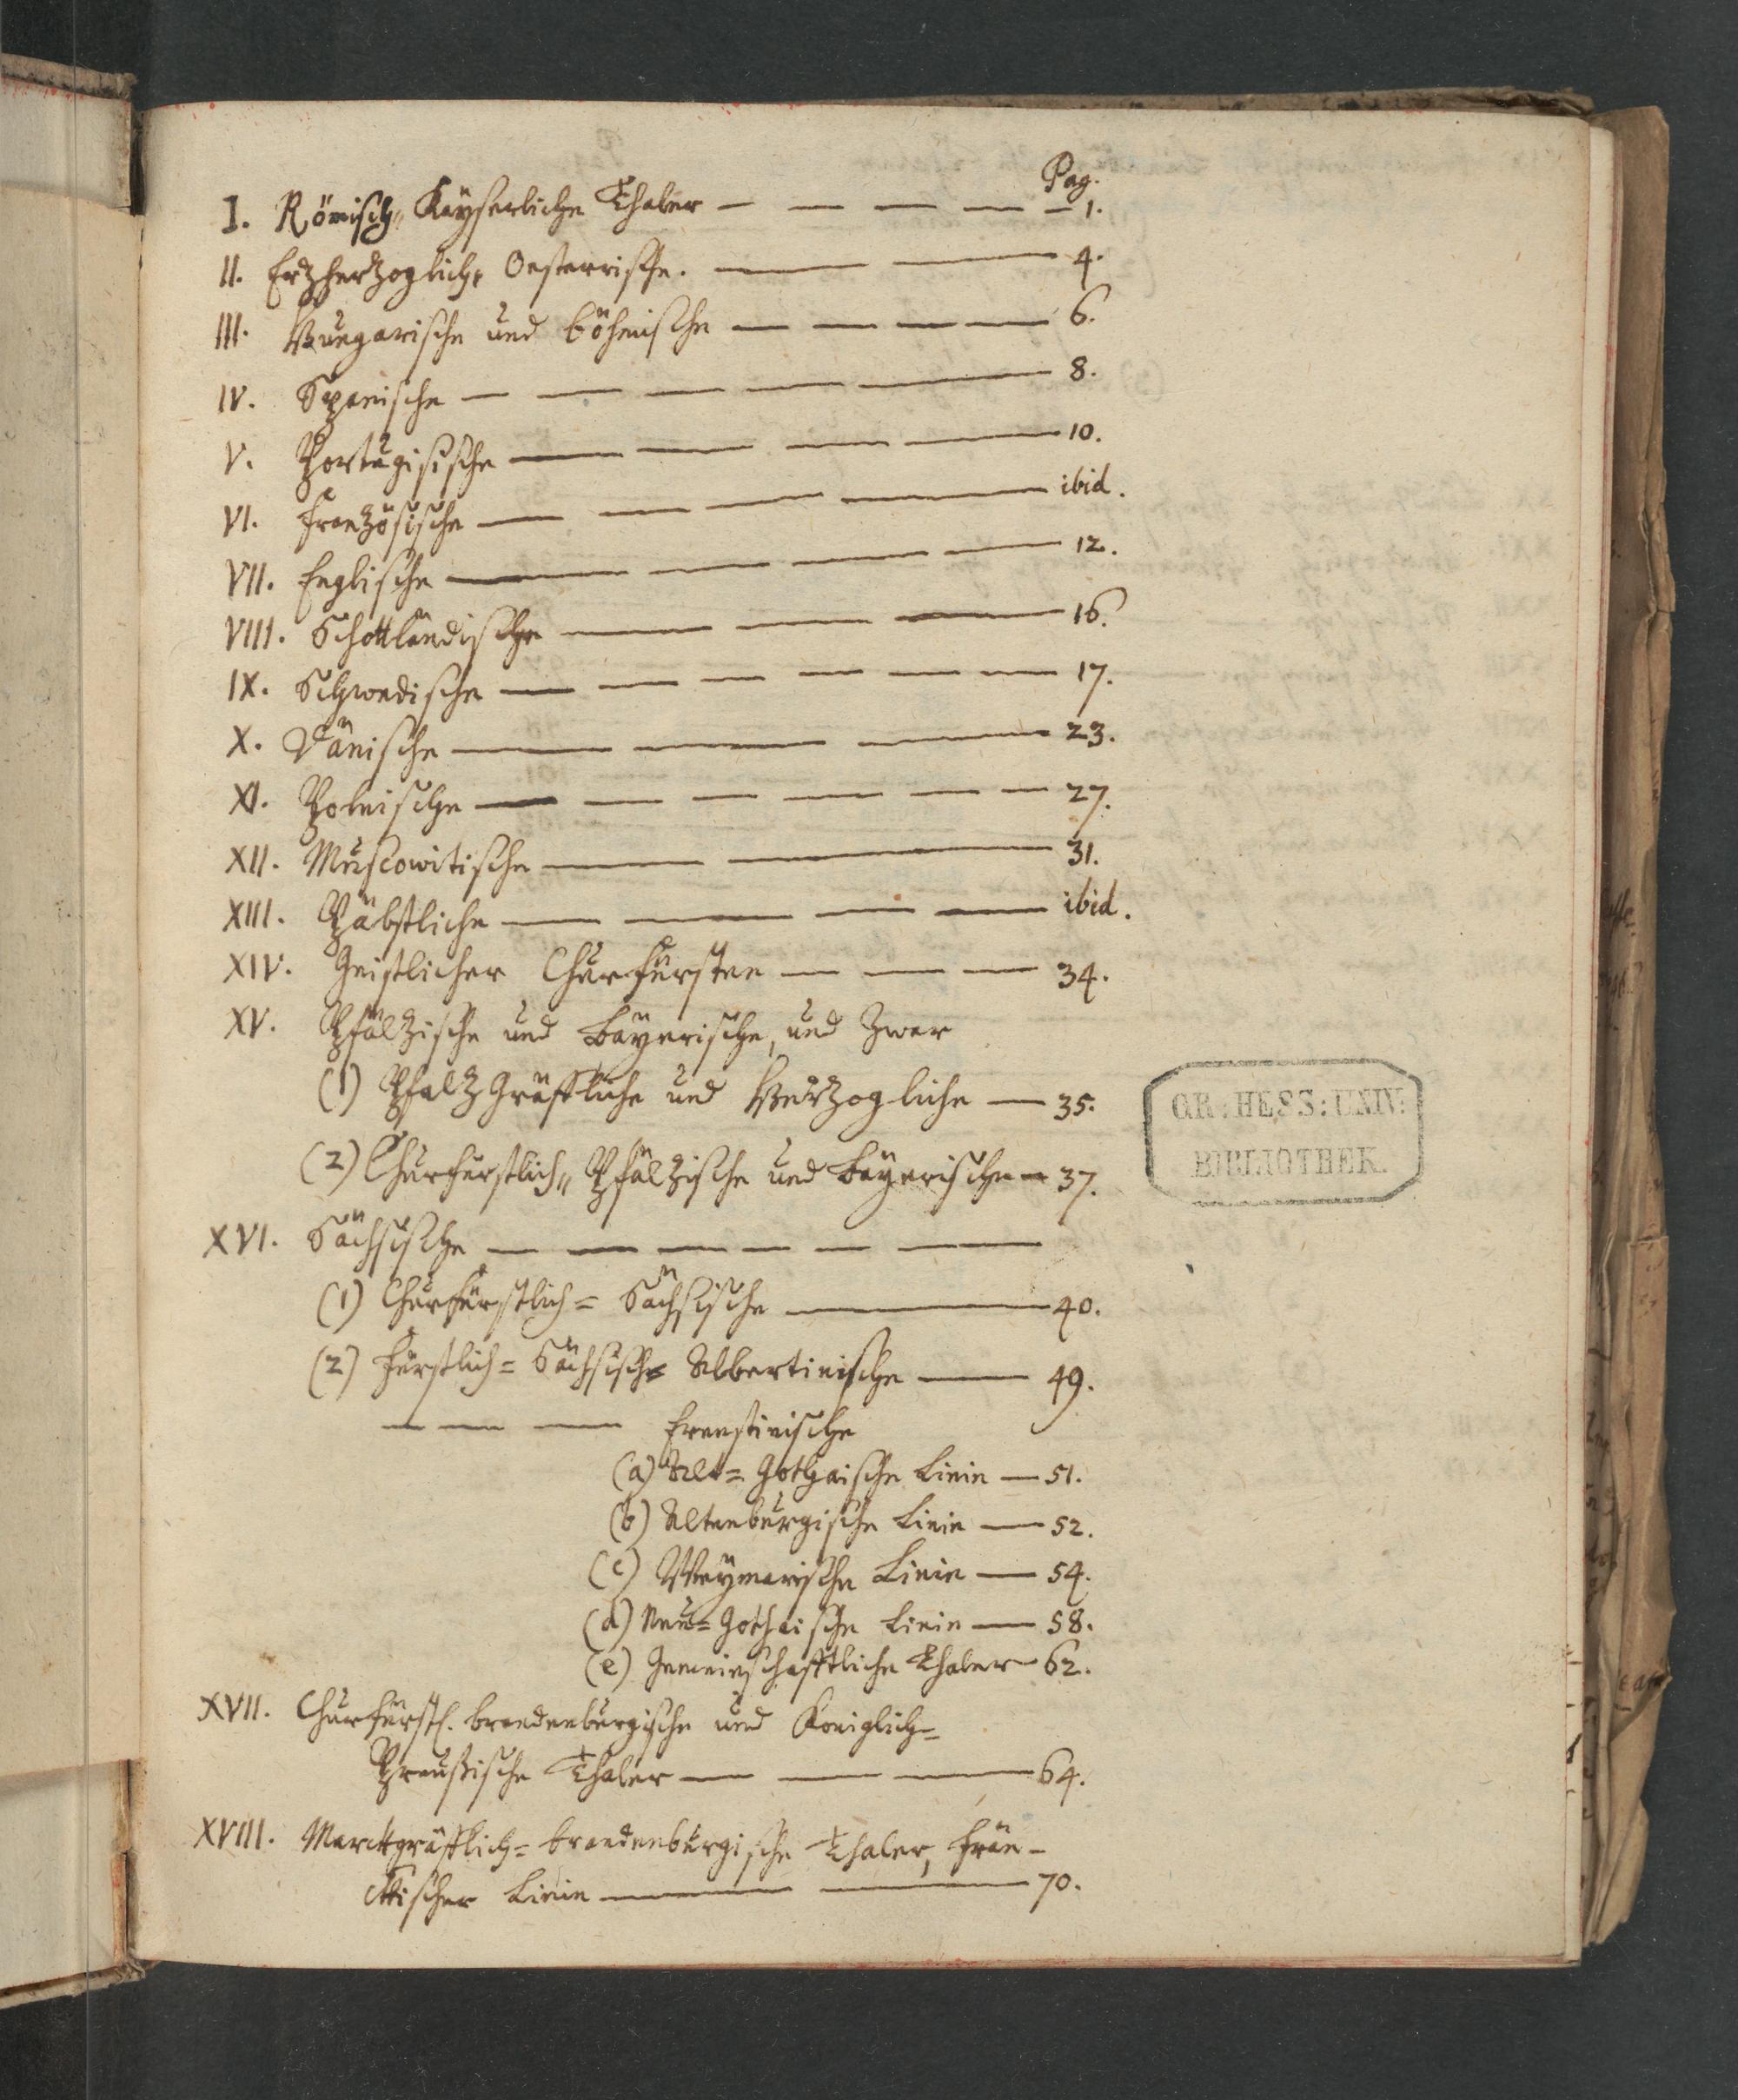 Pag.
I. Römisch„ Käyserliche Thaler — — — — — 1.
II. Ertzhertzoglich„ Oesterrische. — — 4.
III. Hungarische und böhmische — — — — 6.
IV. Spanische — — — — — 8.
V. Portugisische — — — — 10.
VI. Französische — — — — ibid.
VII. Englische — — — — 12.
VIII. Schottländische — — — 16.
IX. Schwedische — — — — — — 17.
X. Dänische — — — 23.
XI. Polnische — — — — — — 27.
XII. Muscowitische — — 31.
XIII. Päbstliche — — — — ibid.
XIV. Geistlicher Churfürsten — — — 34.
XV. Pfältzische und Bayerische, und zwar
(1) Pfaltzgräffliche und Hertzogliche — 35.
(2) Churfürstlich„ Pfältzische und Bayerische — 37.
XVI. Sächsische — — — — — —
(1) Churfürstlich= Sächsische — 40.
(2) Fürstlich= Sächsische Albertinische — 49.
— — — Ernestinische
(a) Alt= Gothaische Linie — 51.
(b) Altenburgische Linie — 52.
(c) Weymarische Linie — 54.
(d) Neu= Gothaische Linie — 58.
(e) Gemeinschafftliche Thaler — 62.
XVII. Churfürstl. brandenburgische und Königlich=
Preußische Thaler — — — 64.
XVIII. Marckgräfflich= brandenburgische Thaler, Frän-
ckischer Linie — — 70.
GR: HESS: UNIV:
BIBLIOTHEK.